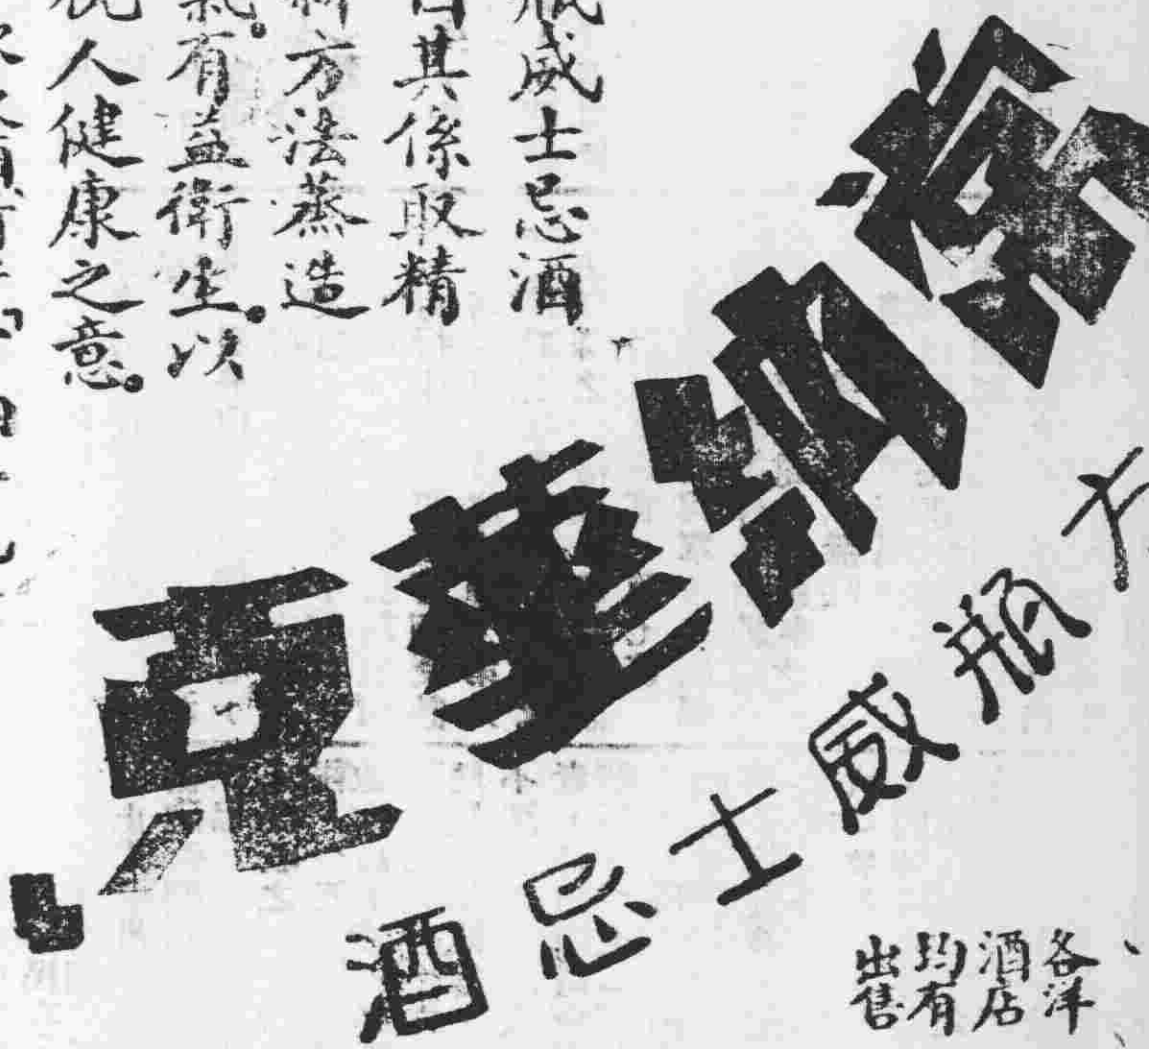 瓶威士忌酒
其係取精
新方法蒸造
氣。有益衛生。以
人健康之意。
納華克
方瓶威士忌酒
各洋
酒店
均有
出售